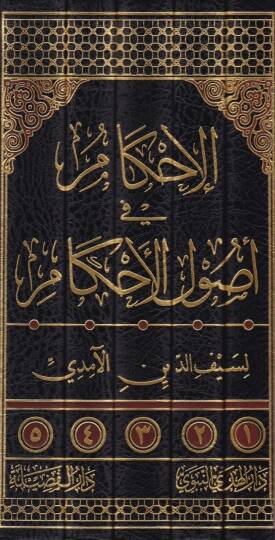 الإحكام
في
أصول الأحكام
لسيف الدين الآمدي
١ ٢ ٣ ٤ ٥
دار الهدي النبوي دار الفضيلة